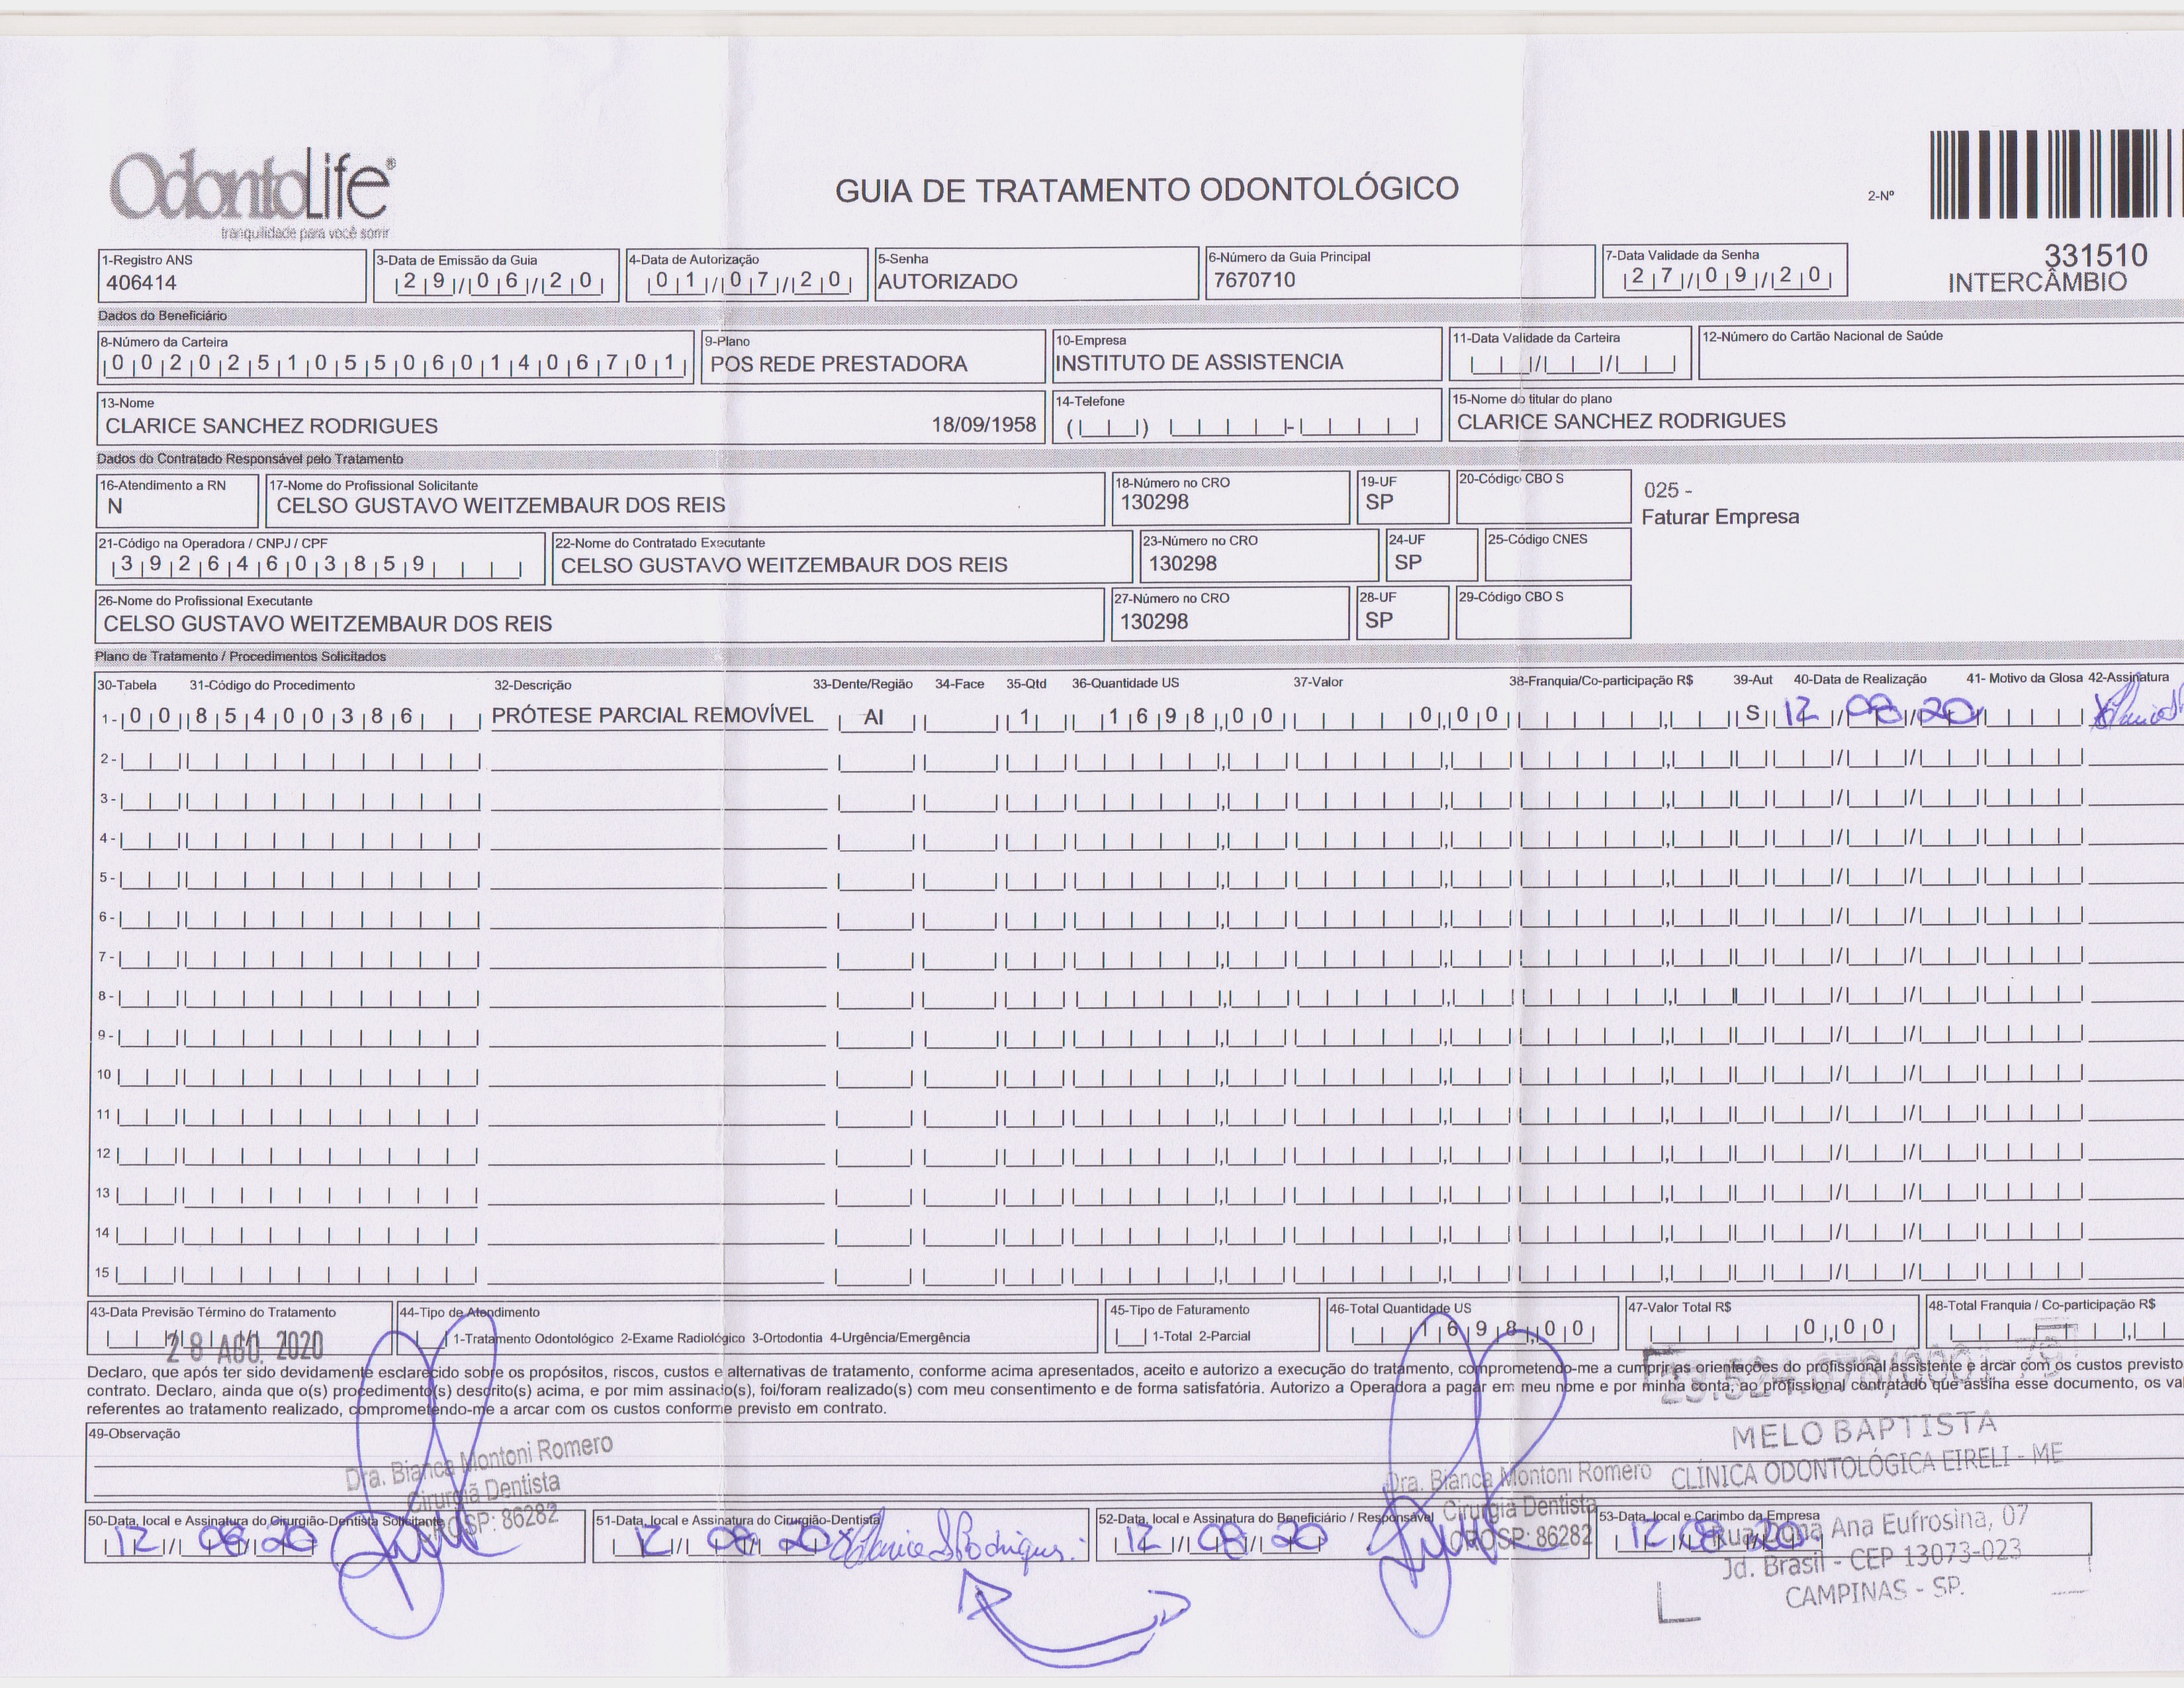 OdontoLife®
tranquilidade para você sorrir
GUIA DE TRATAMENTO ODONTOLÓGICO
2-Nº
331510
INTERCÂMBIO
1-Registro ANS
406414
3-Data de Emissão da Guia
29/06/20
4-Data de Autorização
01/07/20
5-Senha
AUTORIZADO
6-Número da Guia Principal
7670710
7-Data Validade da Senha
27/09/20
Dados do Beneficiário
8-Número da Carteira
00202510550601406701
9-Plano
POS REDE PRESTADORA
10-Empresa
INSTITUTO DE ASSISTENCIA
11-Data Validade da Carteira
12-Número do Cartão Nacional de Saúde
13-Nome
CLARICE SANCHEZ RODRIGUES 18/09/1958
14-Telefone
15-Nome do titular do plano
CLARICE SANCHEZ RODRIGUES
Dados do Contratado Responsável pelo Tratamento
16-Atendimento a RN
N
17-Nome do Profissional Solicitante
CELSO GUSTAVO WEITZEMBAUR DOS REIS
18-Número no CRO
130298
19-UF
SP
20-Código CBO S
025 -
Faturar Empresa
21-Código na Operadora / CNPJ / CPF
39264603859
22-Nome do Contratado Executante
CELSO GUSTAVO WEITZEMBAUR DOS REIS
23-Número no CRO
130298
24-UF
SP
25-Código CNES
26-Nome do Profissional Executante
CELSO GUSTAVO WEITZEMBAUR DOS REIS
27-Número no CRO
130298
28-UF
SP
29-Código CBO S
Plano de Tratamento / Procedimentos Solicitados
30-Tabela 31-Código do Procedimento 32-Descrição 33-Dente/Região 34-Face 35-Qtd 36-Quantidade US 37-Valor 38-Franquia/Co-participação R$ 39-Aut 40-Data de Realização 41- Motivo da Glosa 42-Assinatura
1- 00 85400386 PRÓTESE PARCIAL REMOVÍVEL AI 1 1698,00 0,00 S 12/08/20
2-
3-
4-
5-
6-
7-
8-
9-
10
11
12
13
14
15
43-Data Previsão Término do Tratamento
28 AGO. 2020
44-Tipo de Atendimento
1-Tratamento Odontológico 2-Exame Radiológico 3-Ortodontia 4-Urgência/Emergência
45-Tipo de Faturamento
1-Total 2-Parcial
46-Total Quantidade US
1698,00
47-Valor Total R$
0,00
48-Total Franquia / Co-participação R$
Declaro, que após ter sido devidamente esclarecido sobre os propósitos, riscos, custos e alternativas de tratamento, conforme acima apresentados, aceito e autorizo a execução do tratamento, comprometendo-me a cumprir as orientações do profissional assistente e arcar com os custos previsto
contrato. Declaro, ainda que o(s) procedimento(s) descrito(s) acima, e por mim assinado(s), foi/foram realizado(s) com meu consentimento e de forma satisfatória. Autorizo a Operadora a pagar em meu nome e por minha conta, ao profissional contratado que assina esse documento, os val
referentes ao tratamento realizado, comprometendo-me a arcar com os custos conforme previsto em contrato.
49-Observação
Dra. Bianca Montoni Romero
Cirurgiã Dentista
CROSP: 86282
Dra. Bianca Montoni Romero
Cirurgiã Dentista
CROSP: 86282
MELO BAPTISTA
CLÍNICA ODONTOLÓGICA EIRELI - ME
Rua Dona Ana Eufrosina, 07
Jd. Brasil - CEP 13073-023
CAMPINAS - SP.
50-Data, local e Assinatura do Cirurgião-Dentista Solicitante
12 08 20
51-Data, local e Assinatura do Cirurgião-Dentista
12 08 20 Clarice S Rodrigues
52-Data, local e Assinatura do Beneficiário / Responsável
12 08 20
53-Data, local e Carimbo da Empresa
12 08 20